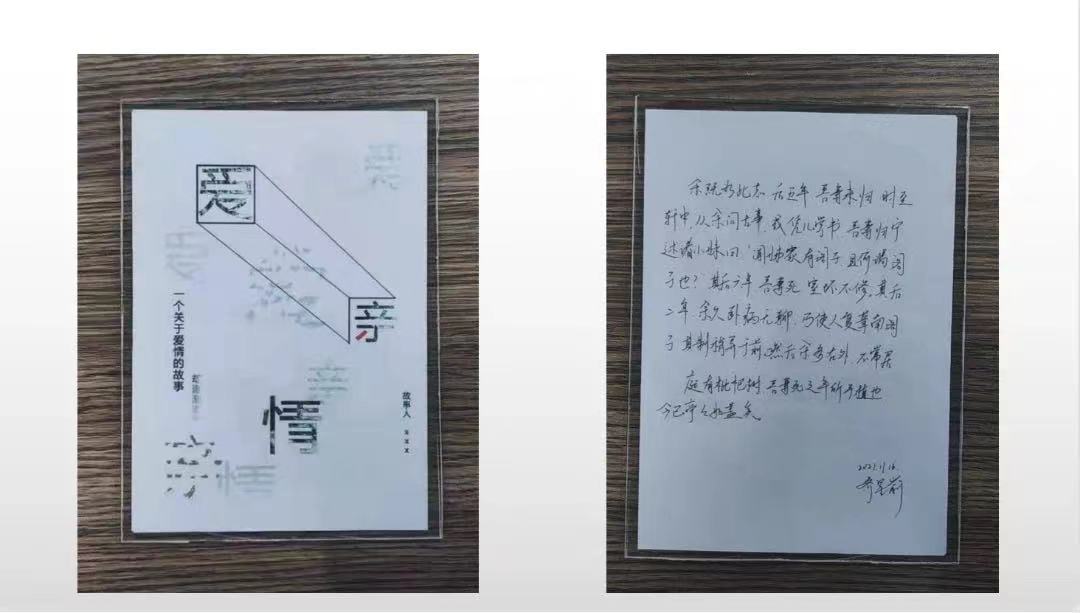 爱
亲
情
一个关于爱情的故事
故事人 x x x
爱
亲
情
余既为此志 后五年 吾妻来归 时至
轩中,从余问古事,或凭几学书,吾妻归宁
述诸小妹曰:“闻姊家有阁子 且何谓阁
子也?”其后六年 吾妻死 室坏不修,其后
二年,余久卧病无聊,乃使人复葺南阁
子 其制稍异于前,然后余多在外 不常居
庭有枇杷树,吾妻死之年所手植也
今已亭々如盖矣。
2021.11.16.